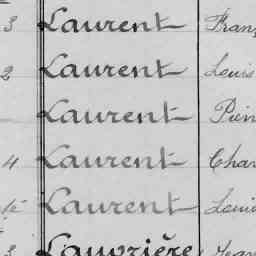 3 Laurent Fran
2 Laurent Louis
Laurent Pier
4 Laurent Char
Laurent Louis
3 Lauvrière Jean